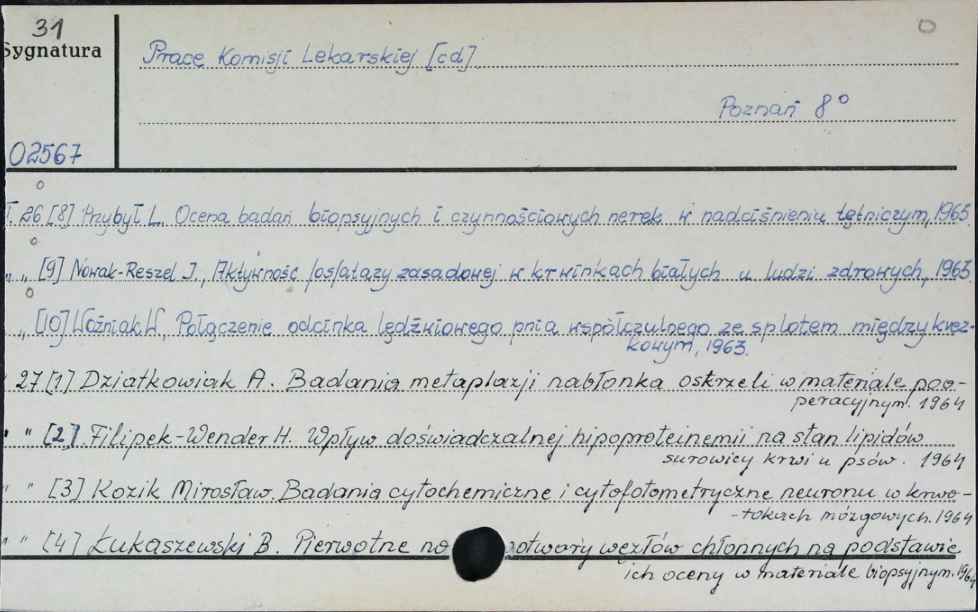 31
Sygnatura
Prace Komisji Lekarskiej [cd]
Poznań 8°
02567
T. 26 [8] Przybył L. Ocena badań biopsyjnych i czynnościowych nerek w nadciśnieniu tętniczym, 1963.
" " [9] Nowak-Reszel J., Aktywność fosfatazy zasadowej w krwinkach białych u ludzi zdrowych, 1963
" [10] Woźniak W. Połączenie odcinka lędźwiowego pnia współczulnego ze splotem międzykrez-
kowym, 1963.
" 27 [1] Działkowiak A. Badania metaplazji nabłonka oskrzeli w materiale poo-
peracyjnym. 1964
" " [2] Filipek-Wender H. Wpływ doświadczalnej hipoproteinemii na stan lipidów
surowicy krwi u psów. 1964
" " [3] Kozik Mirosław. Badania cytochemiczne i cytofotometryczne neuronu w krwo-
-tokach mózgowych. 1964
" " [4] Łukaszewski B. Pierwotne no otwory węzłów chłonnych na podstawie
ich oceny w materiale biopsyjnym. 1964